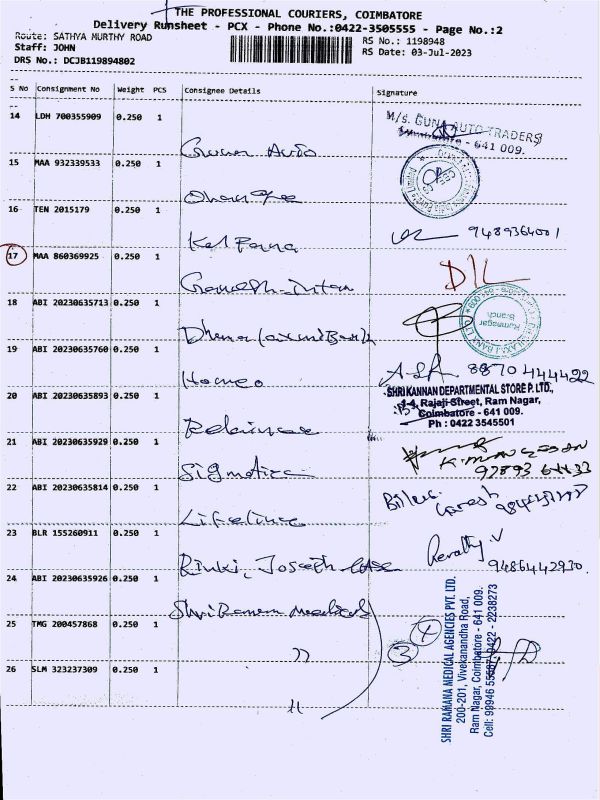 THE PROFESSIONAL COURIERS, COIMBATORE
Delivery Runsheet - PCX - Phone No.:0422-3505555 - Page No.:2
Route: SATHYA MURTHY ROAD
Staff: JOHN
DRS No.: DCJB119894802
RS No.: 1198948
RS Date: 03-Jul-2023
S No Consignment No Weight PCS Consignee Details Signature
14 LDH 700355909 0.250 1
Guna Auto
M/s. GUNA AUTO TRADERS
- 641 009.
15 MAA 932339533 0.250 1
16 TEN 2015179 0.250 1
Kalpana
9489364001
17 MAA 860369925 0.250 1
DIL
18 ABI 20230635713 0.250 1
Dhanalaxmi Bank
Ramnagar
Branch
19 ABI 20230635760 0.250 1
Homeo
8870444422
20 ABI 20230635893 0.250 1
Reliance
SHRI KANNAN DEPARTMENTAL STORE P. LTD.,
1-4, Rajaji Street, Ram Nagar,
Coimbatore - 641 009.
Ph : 0422 3545501
21 ABI 20230635929 0.250 1
K. MURUGESAN
22 ABI 20230635814 0.250 1
Lifeline
23 BLR 155260911 0.250 1
Rinki, Joseph
Revathy V
9486442930
24 ABI 20230635926 0.250 1
Shri Ramana Medical
25 TMG 200457868 0.250 1
"
3 4
26 SLM 323237309 0.250 1
"
SHRI RAMANA MEDICAL AGENCIES PVT. LTD.
200-201, Vivekanandha Road,
Ram Nagar, Coimbatore - 641 009.